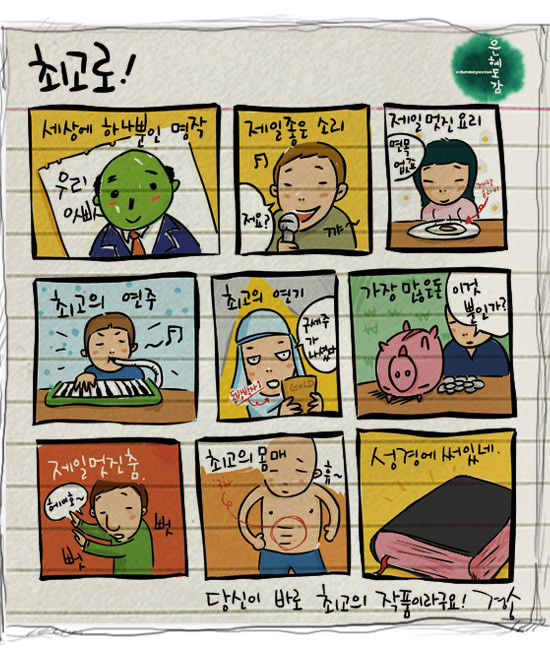 최고로!
은혜도감
세상에 하나뿐인 명작
우리
아빠
제일좋은 소리
저요?
꺄~
제일멋진요리
면목
없죠
계란
후라이
최고의 연주
최고의 연기
구세주
가
나셨다
동방박사1
GOLD
가장 많은돈
이것
뿐인가?
제일멋진춤.
헤이호~
뻣
뻣
최고의몸매
휴~
성경에써있네.
당신이 바로 최고의 작품이라구요!